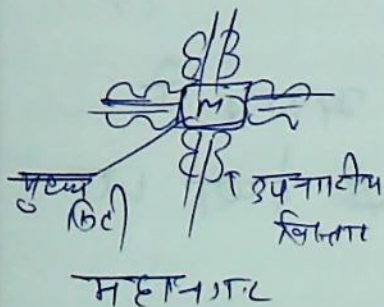 M
मुख्य
सिटी
उपनगरीय
विस्तार
महानगर